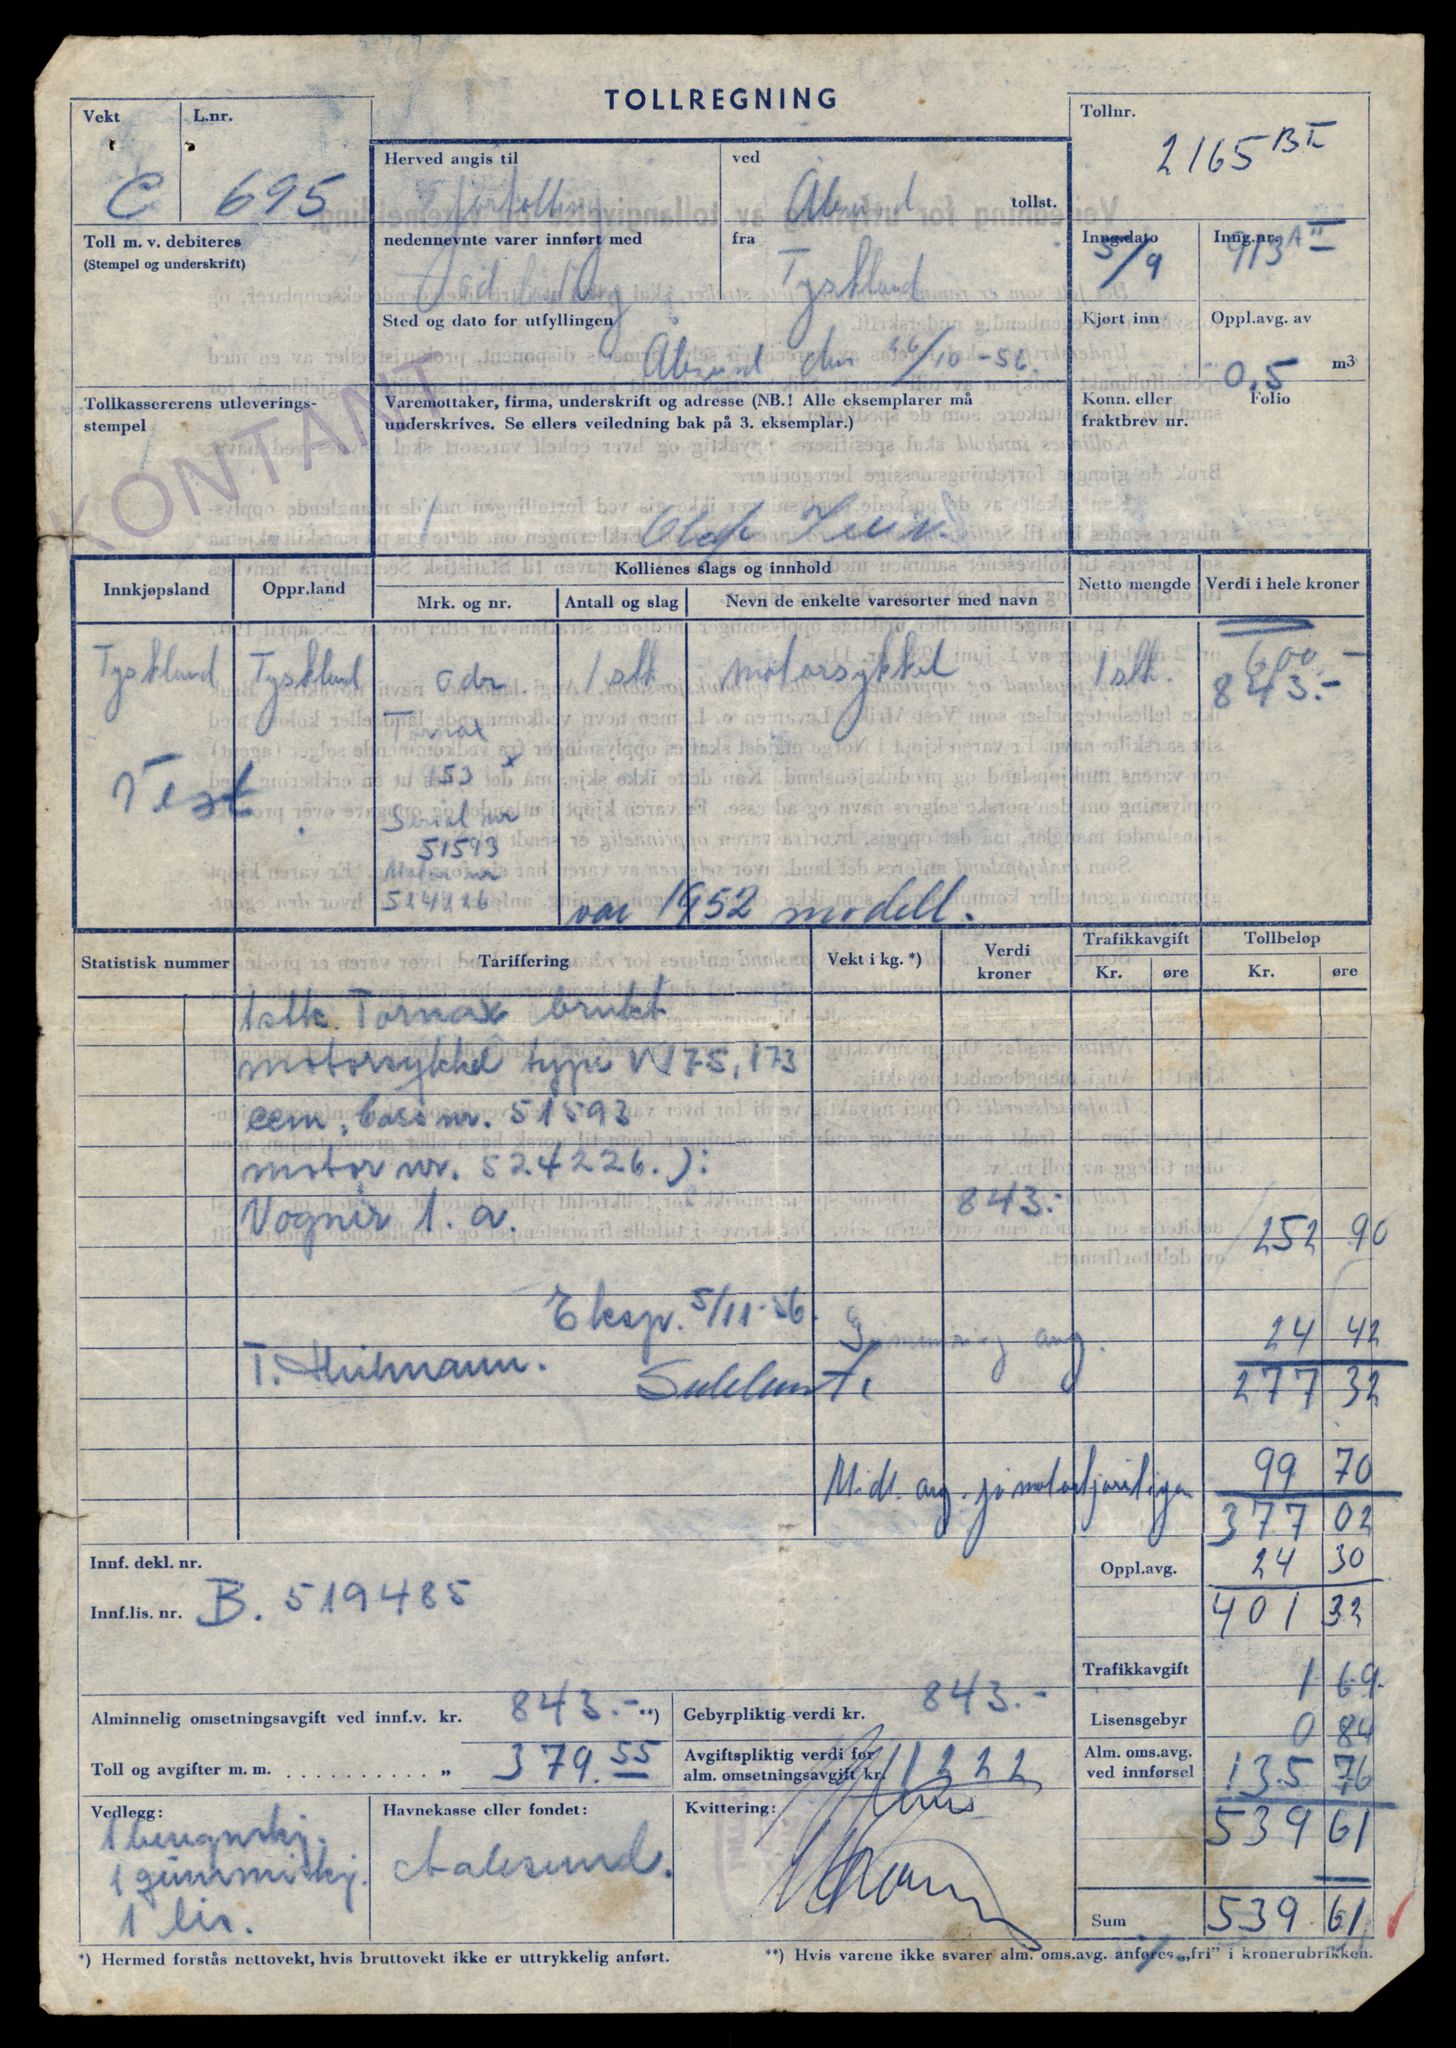 TOLLREGNING
Vekt
C
L.nr.
695
Toll m. v. debiteres
(Stempel og underskrift)
Tollkassererens utleverings-
stempel
KONTANT
Herved angis til
fortolling
ved
Ålesund
tollst.
nedennevnte varer innført med
fra
Tyskland
Sted og dato for utfyllingen
Ålesund den 26/10-56.
Varemottaker, firma, underskrift og adresse (NB.! Alle eksemplarer må
underskrives. Se ellers veiledning bak på 3. eksemplar.)
Tollnr.
2165 B I
Inng.dato
5/9
Inng.nr.
913 A II
Kjørt inn
Oppl.avg. av
0,5 m3
Konn. eller
fraktbrev nr.
Folio
Innkjøpsland
Oppr.land
Kollienes slags og innhold
Mrk. og nr.
Antall og slag
Nevn de enkelte varesorter med navn
Netto mengde
Verdi i hele kroner
Tyskland Tyskland adr 1 stk motorsykkel 1 stk. 600 -
843.-
Tornax
Vest.
153
Serial nr
51593
Motor nr
524226
var 1952 modell.
Statistisk nummer
Tariffering
Vekt i kg. *)
Verdi
kroner
Trafikkavgift
Kr. øre
Tollbeløp
Kr. øre
1 stk. Tornax brukt
motorsykkel type V 175, 173
ccm,
nr. 51593
motor nr. 524226.):
Vogner 1. a. 843.- 252 90
Eksp. 5/11-56.
24 42
277 32
99 70
377 02
Oppl.avg. 24 30
401 32
Innf. dekl. nr.
Innf.lis. nr. B. 519485
Trafikkavgift 1 69.
Lisensgebyr 0 84
Alm. oms.avg.
ved innførsel 135 76
539 61
Sum 539 61
Alminnelig omsetningsavgift ved innf.v. kr. 843.- **)
Toll og avgifter m. m. . . . . . . . . . . . „ 379.55
Gebyrpliktig verdi kr. 843.-
Avgiftspliktig verdi for
alm. omsetningsavgift kr. 1222
Vedlegg:
1 lis.
Havnekasse eller fondet:
Aalesund.
Kvittering:
*) Hermed forstås nettovekt, hvis bruttovekt ikke er uttrykkelig anført.
**) Hvis varene ikke svarer alm. oms.avg. anføres „fri” i kronerubrikken.